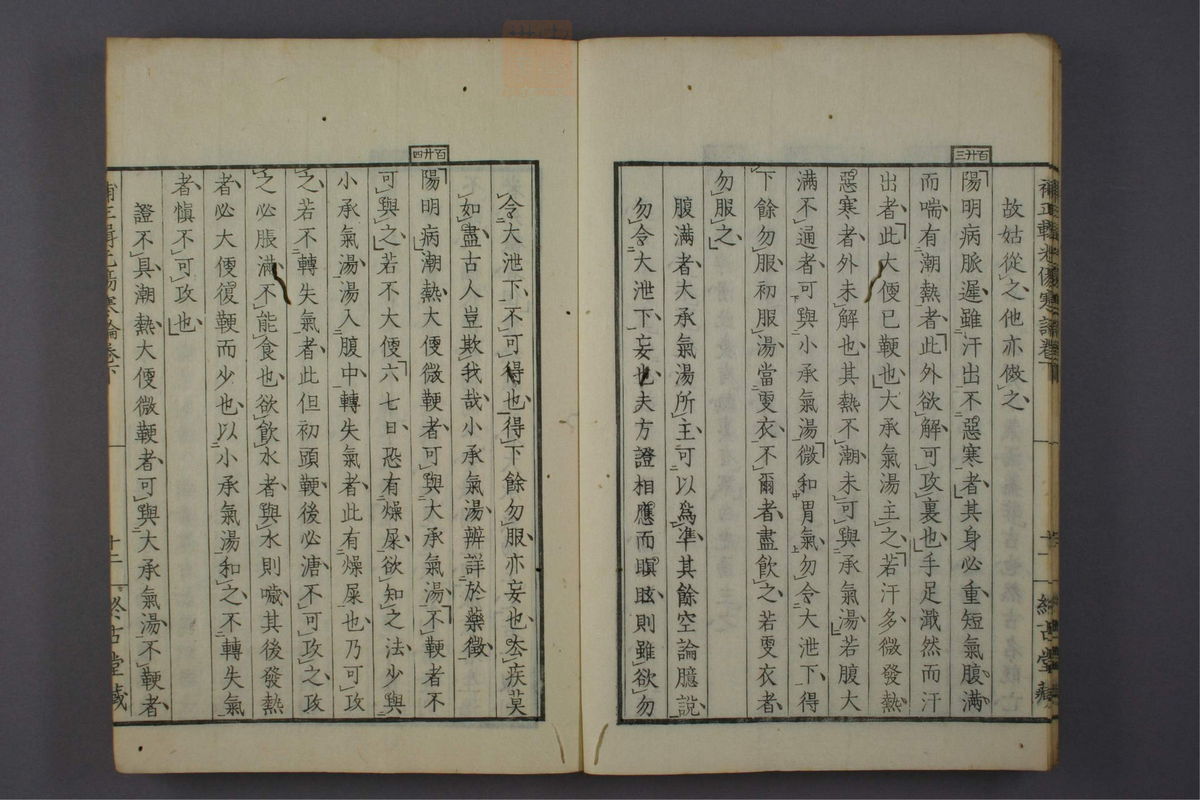 補正輯光傷寒論卷下
終古堂藏
百廿三
故姑從之他亦倣之
陽明病脈遲雖汗出不惡寒者其身必重短氣腹滿
而喘有潮熱者此外欲解可攻裏也手足濈然而汗
出者此大便已鞕也大承氣湯主之若汗多微發熱
惡寒者外未解也其熱不潮未可與承氣湯若腹大
滿不通者可與小承氣湯微和胃氣勿令大泄下得
下餘勿服初服湯當更衣不爾者盡飲之若更衣者
勿服之
腹滿者大承氣湯所主可以爲準其餘空論臆說
勿令大泄下妄也夫方證相應而瞑眩則雖欲勿
百廿四
令大泄下不可得也得下餘勿服亦妄也苾疾莫
如盡古人豈欺我哉小承氣湯辨詳於藥徵
陽明病潮熱大便微鞕者可與大承氣湯不鞕者不
可與之若不大便六七日恐有燥屎欲知之法少與
小承氣湯湯入腹中轉失氣者此有燥屎也乃可攻
之若不轉失氣者此但初頭鞕後必溏不可攻之攻
之必脹滿不能食也欲飲水者與水則噦其後發熱
者必大便復鞕而少也以小承氣湯和之不轉失氣
者愼不可攻也
證不具潮熱大便微鞕者可與大承氣湯不鞕者
十二
終古堂藏